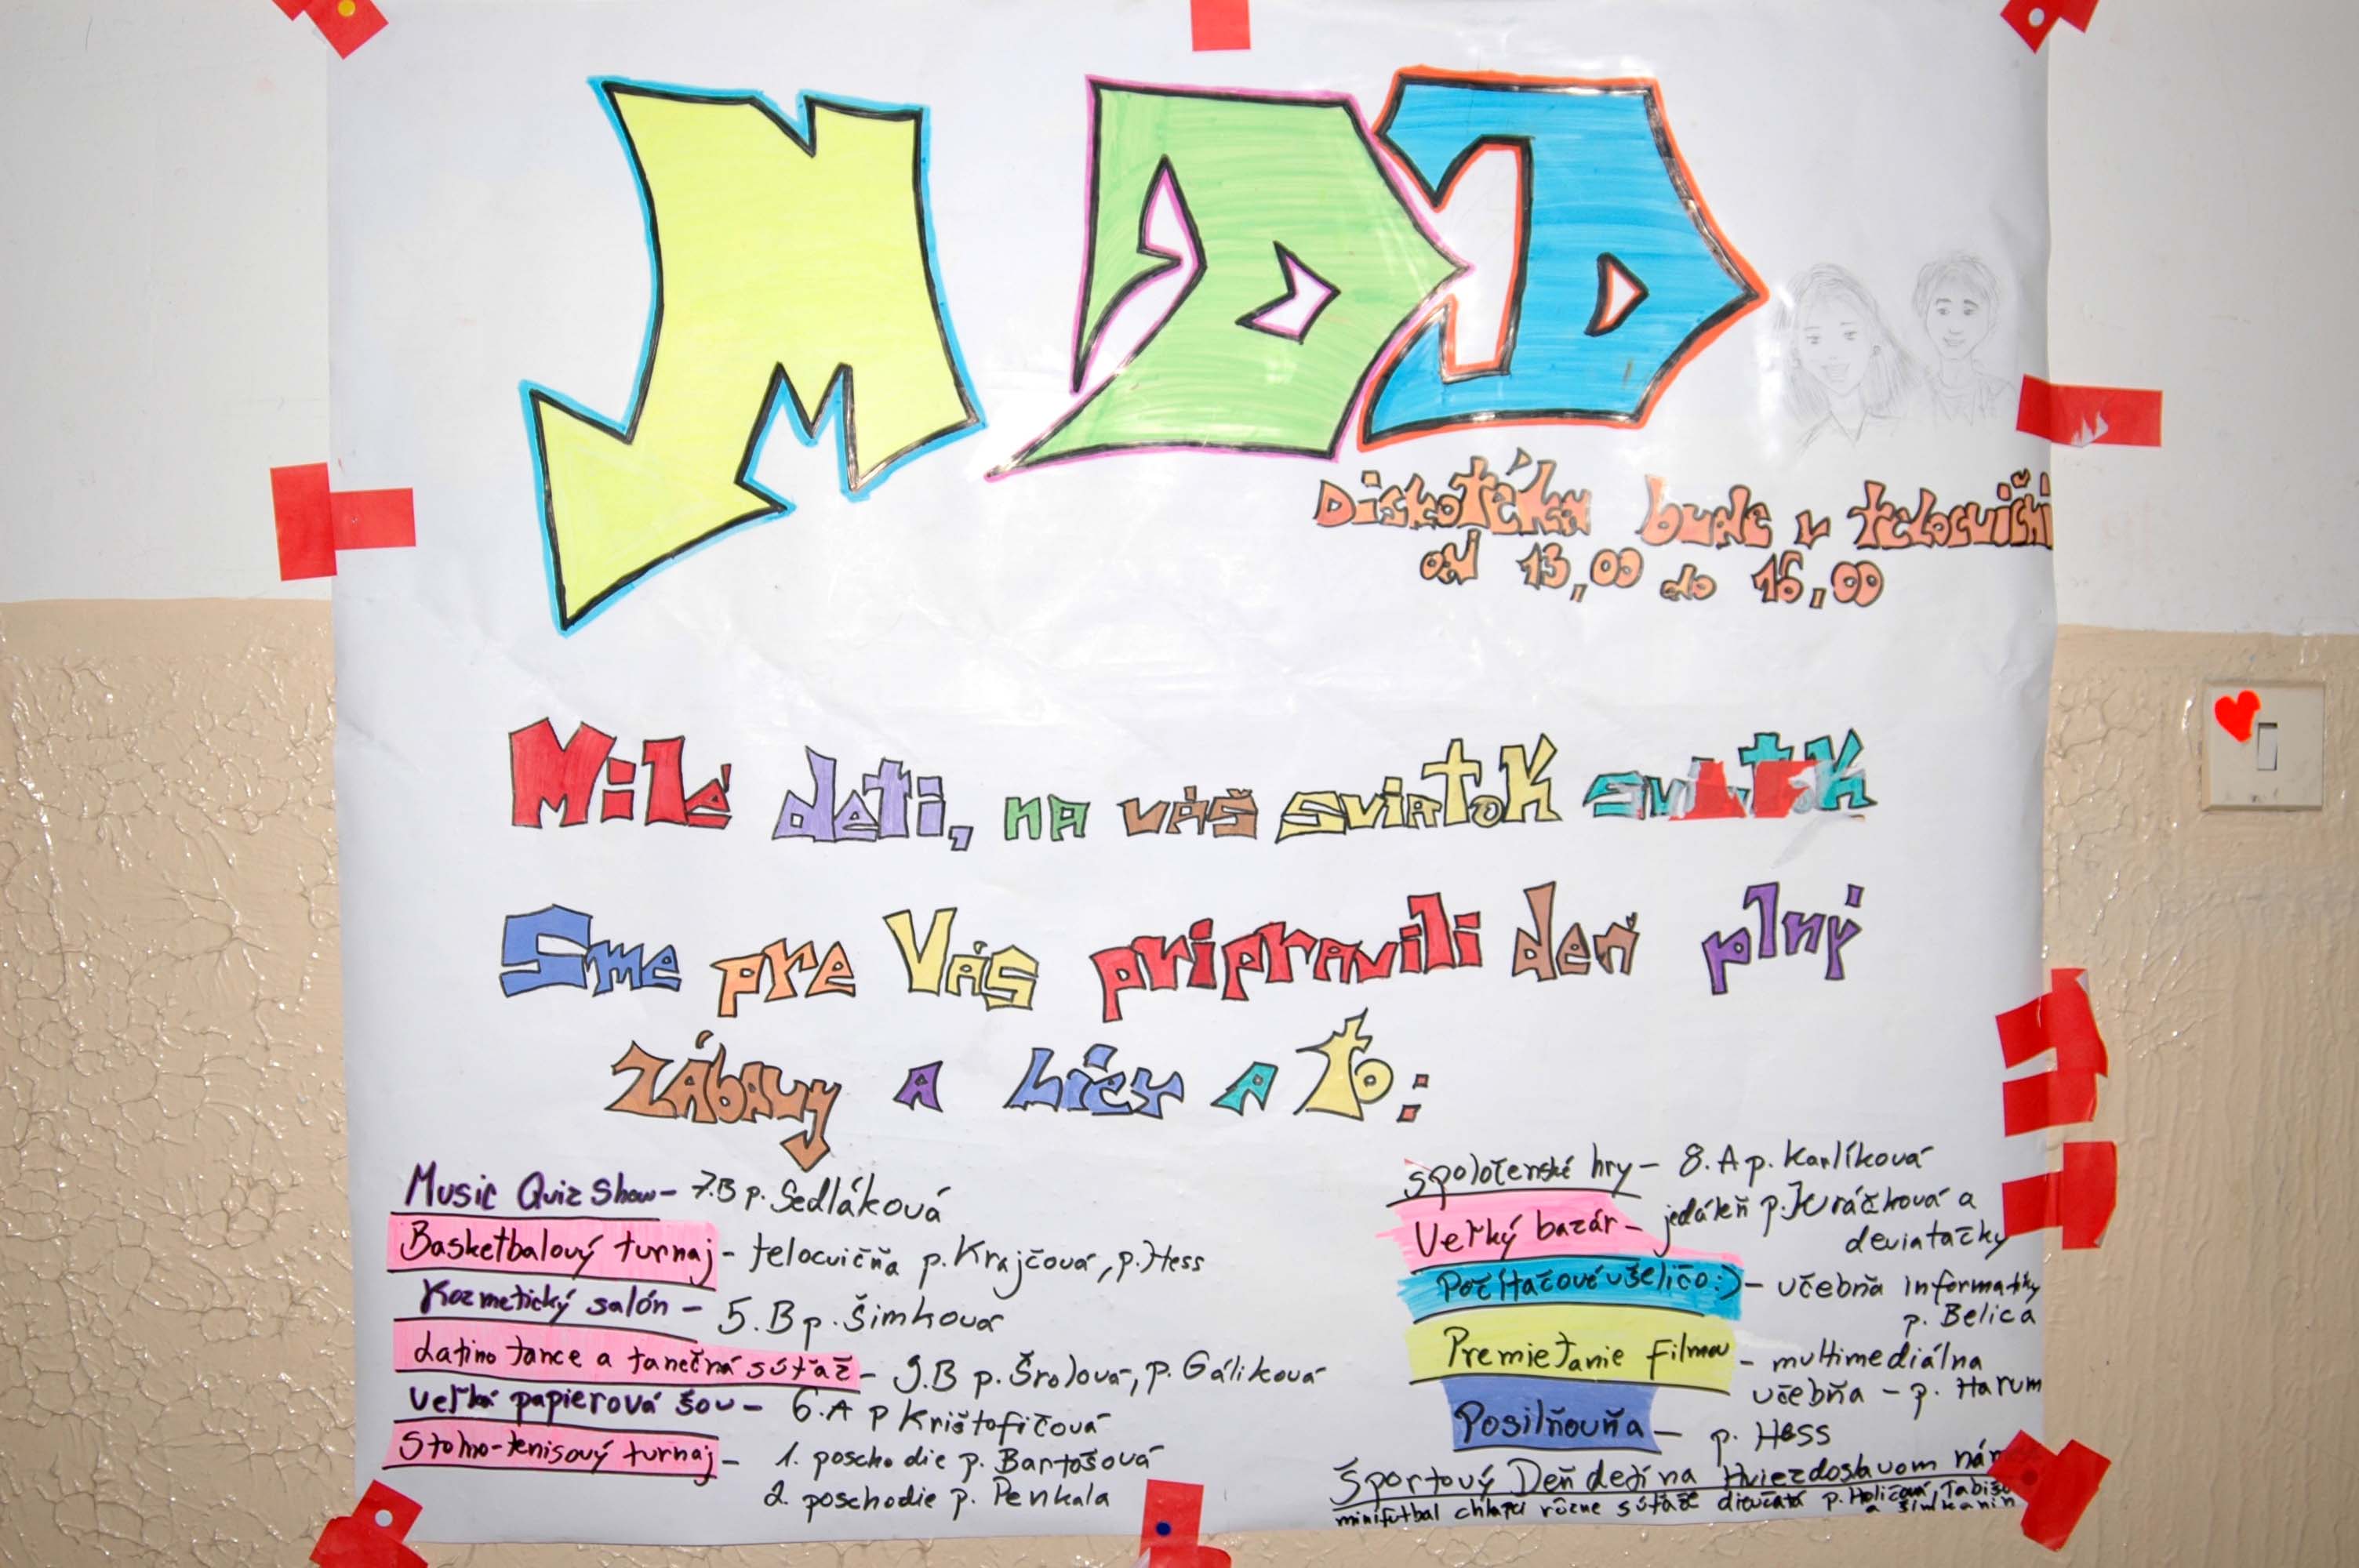 MDD
Diskotéka bude v telocvični
od 13,00 do 16,00
Milé deti, na váš sviatok
Sme pre Vás pripravili deň plný
zábavy a hier a to:
Music Quiz Show - 7.B p. Sedláková
Basketbalový turnaj - telocvičňa p. Krajčová, p. Hess
Kozmetický salón - 5. B p. Šimková
Latino tance a tanečná súťaž - 9.B p. Šrolová, p. Gáliková
Veľká papierová šou - 6.A p Krištofičová
Stolno-tenisový turnaj - 1. poschodie p. Bartošová
2. poschodie p. Penkala
spoločenské hry - 8. A p. Karlíková
Veľký bazár - jedáleň p. Kráčková a
deviatačky
Počítačové všeličo :) - učebňa informatiky
p. Belica
Premietanie filmov - multimediálna
učebňa - p. Harum
Posilňovňa - p. Hess
Športový Deň detí na Hviezdoslavom
minifutbal chlapci rôzne súťaže dievčatá p. Holicová,